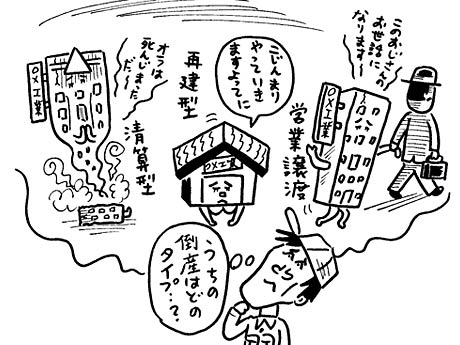 このおじさんの
お世話に
なります〜
OX工業
営業譲渡
こじんまり
やっていき
ますよってに
再建型
OX工業
オラは
死んじまっ
ただ〜
OX工業
清算型
うちの
倒産はどの
タイプ…?